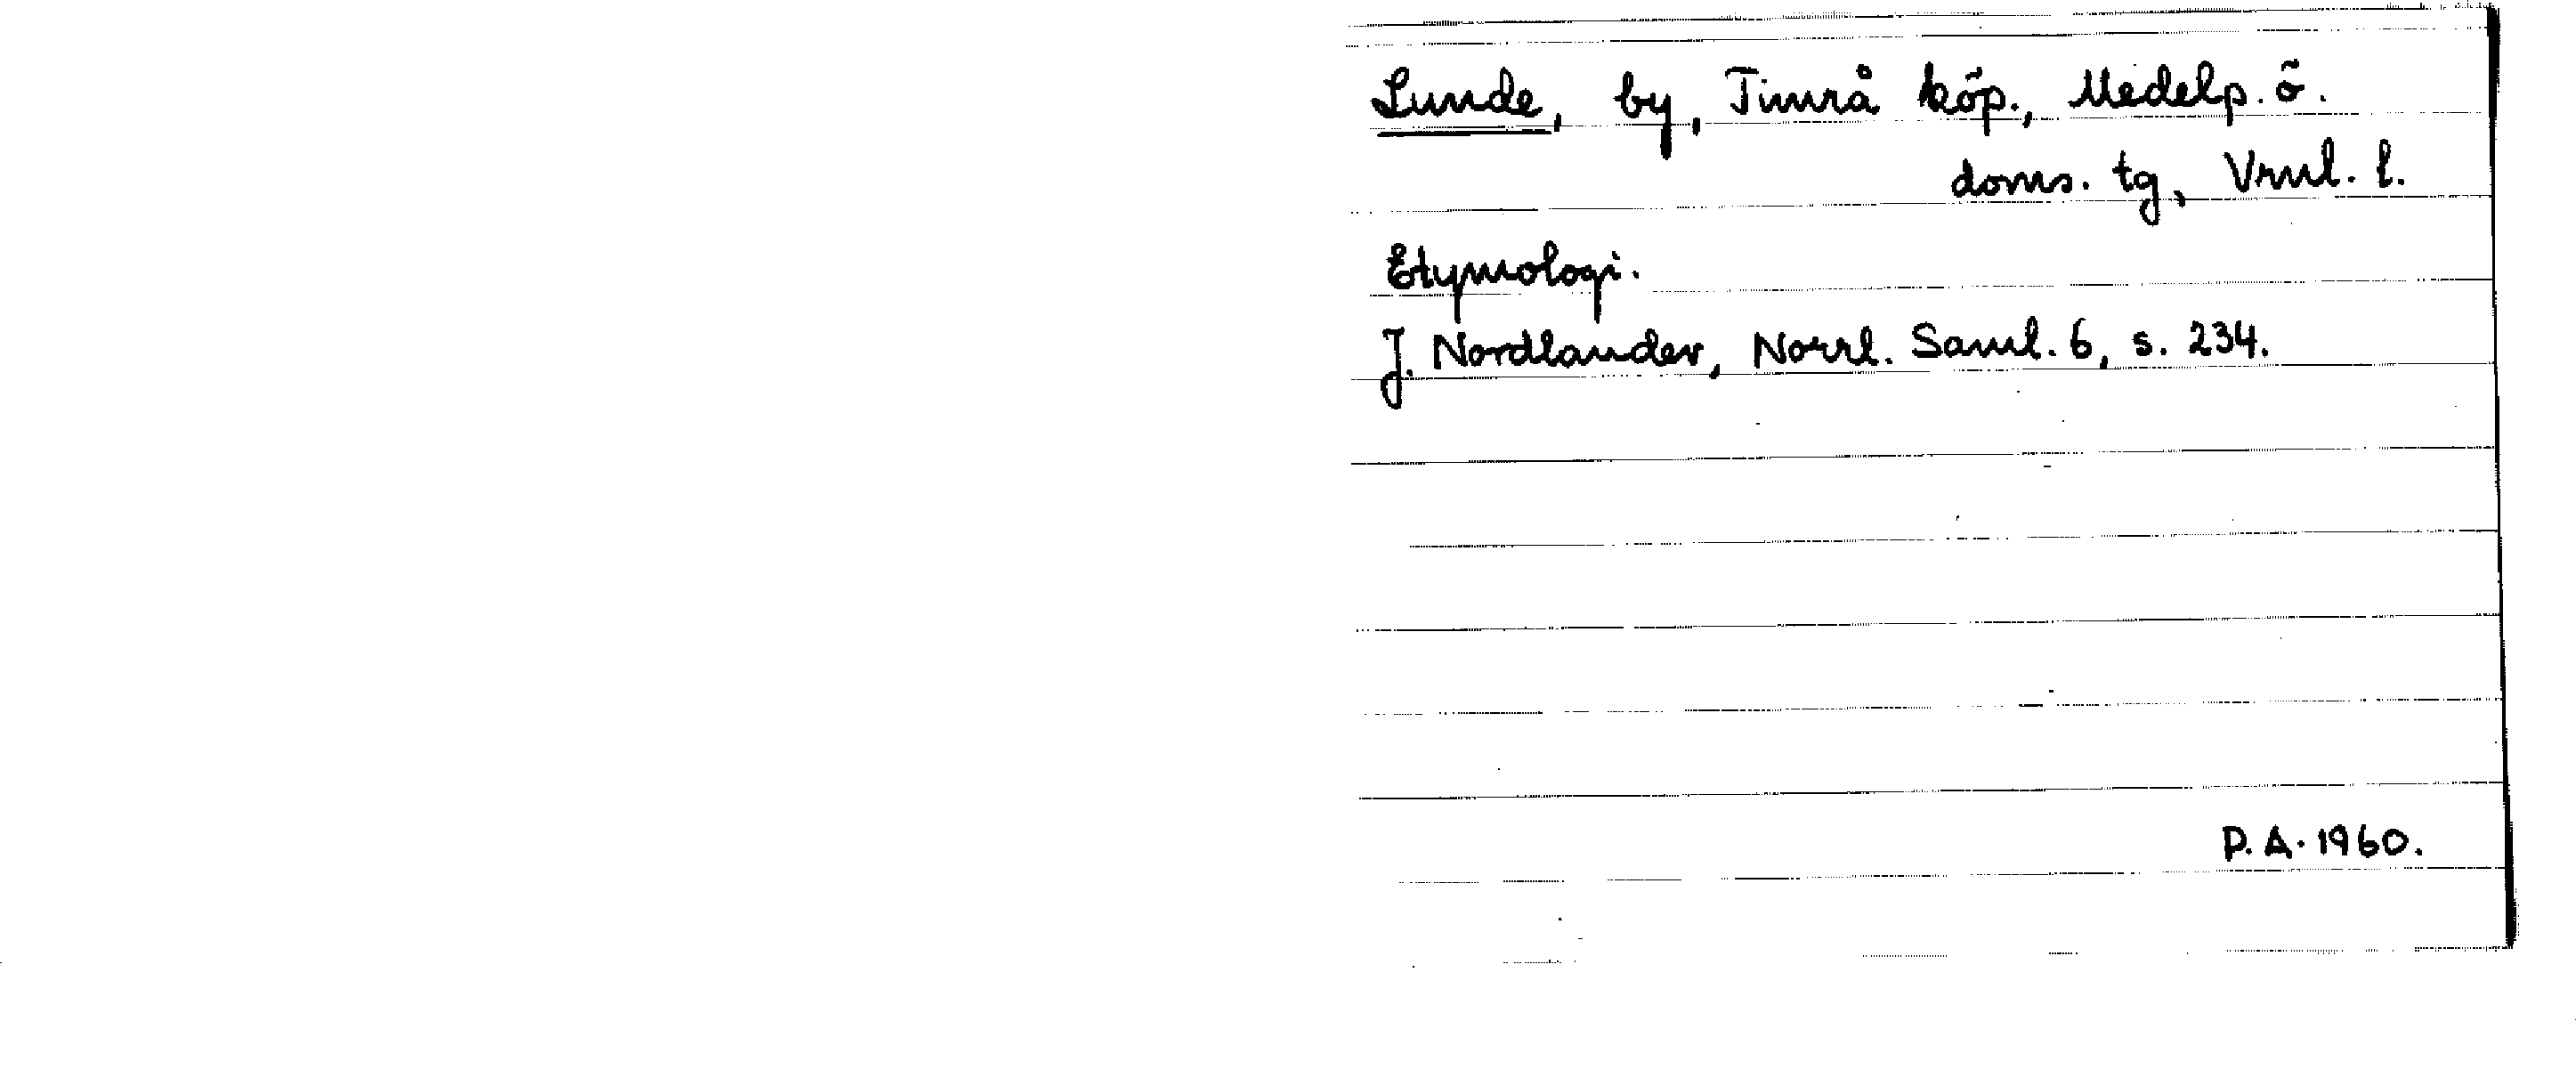 Lunde, by, Timrå köp., Medelp. ö.
doms. tg, Vrnl. l.
Etymologi.
J. Nordlander, Norrl. Saml. 6, s. 234.
P. A. 1960.